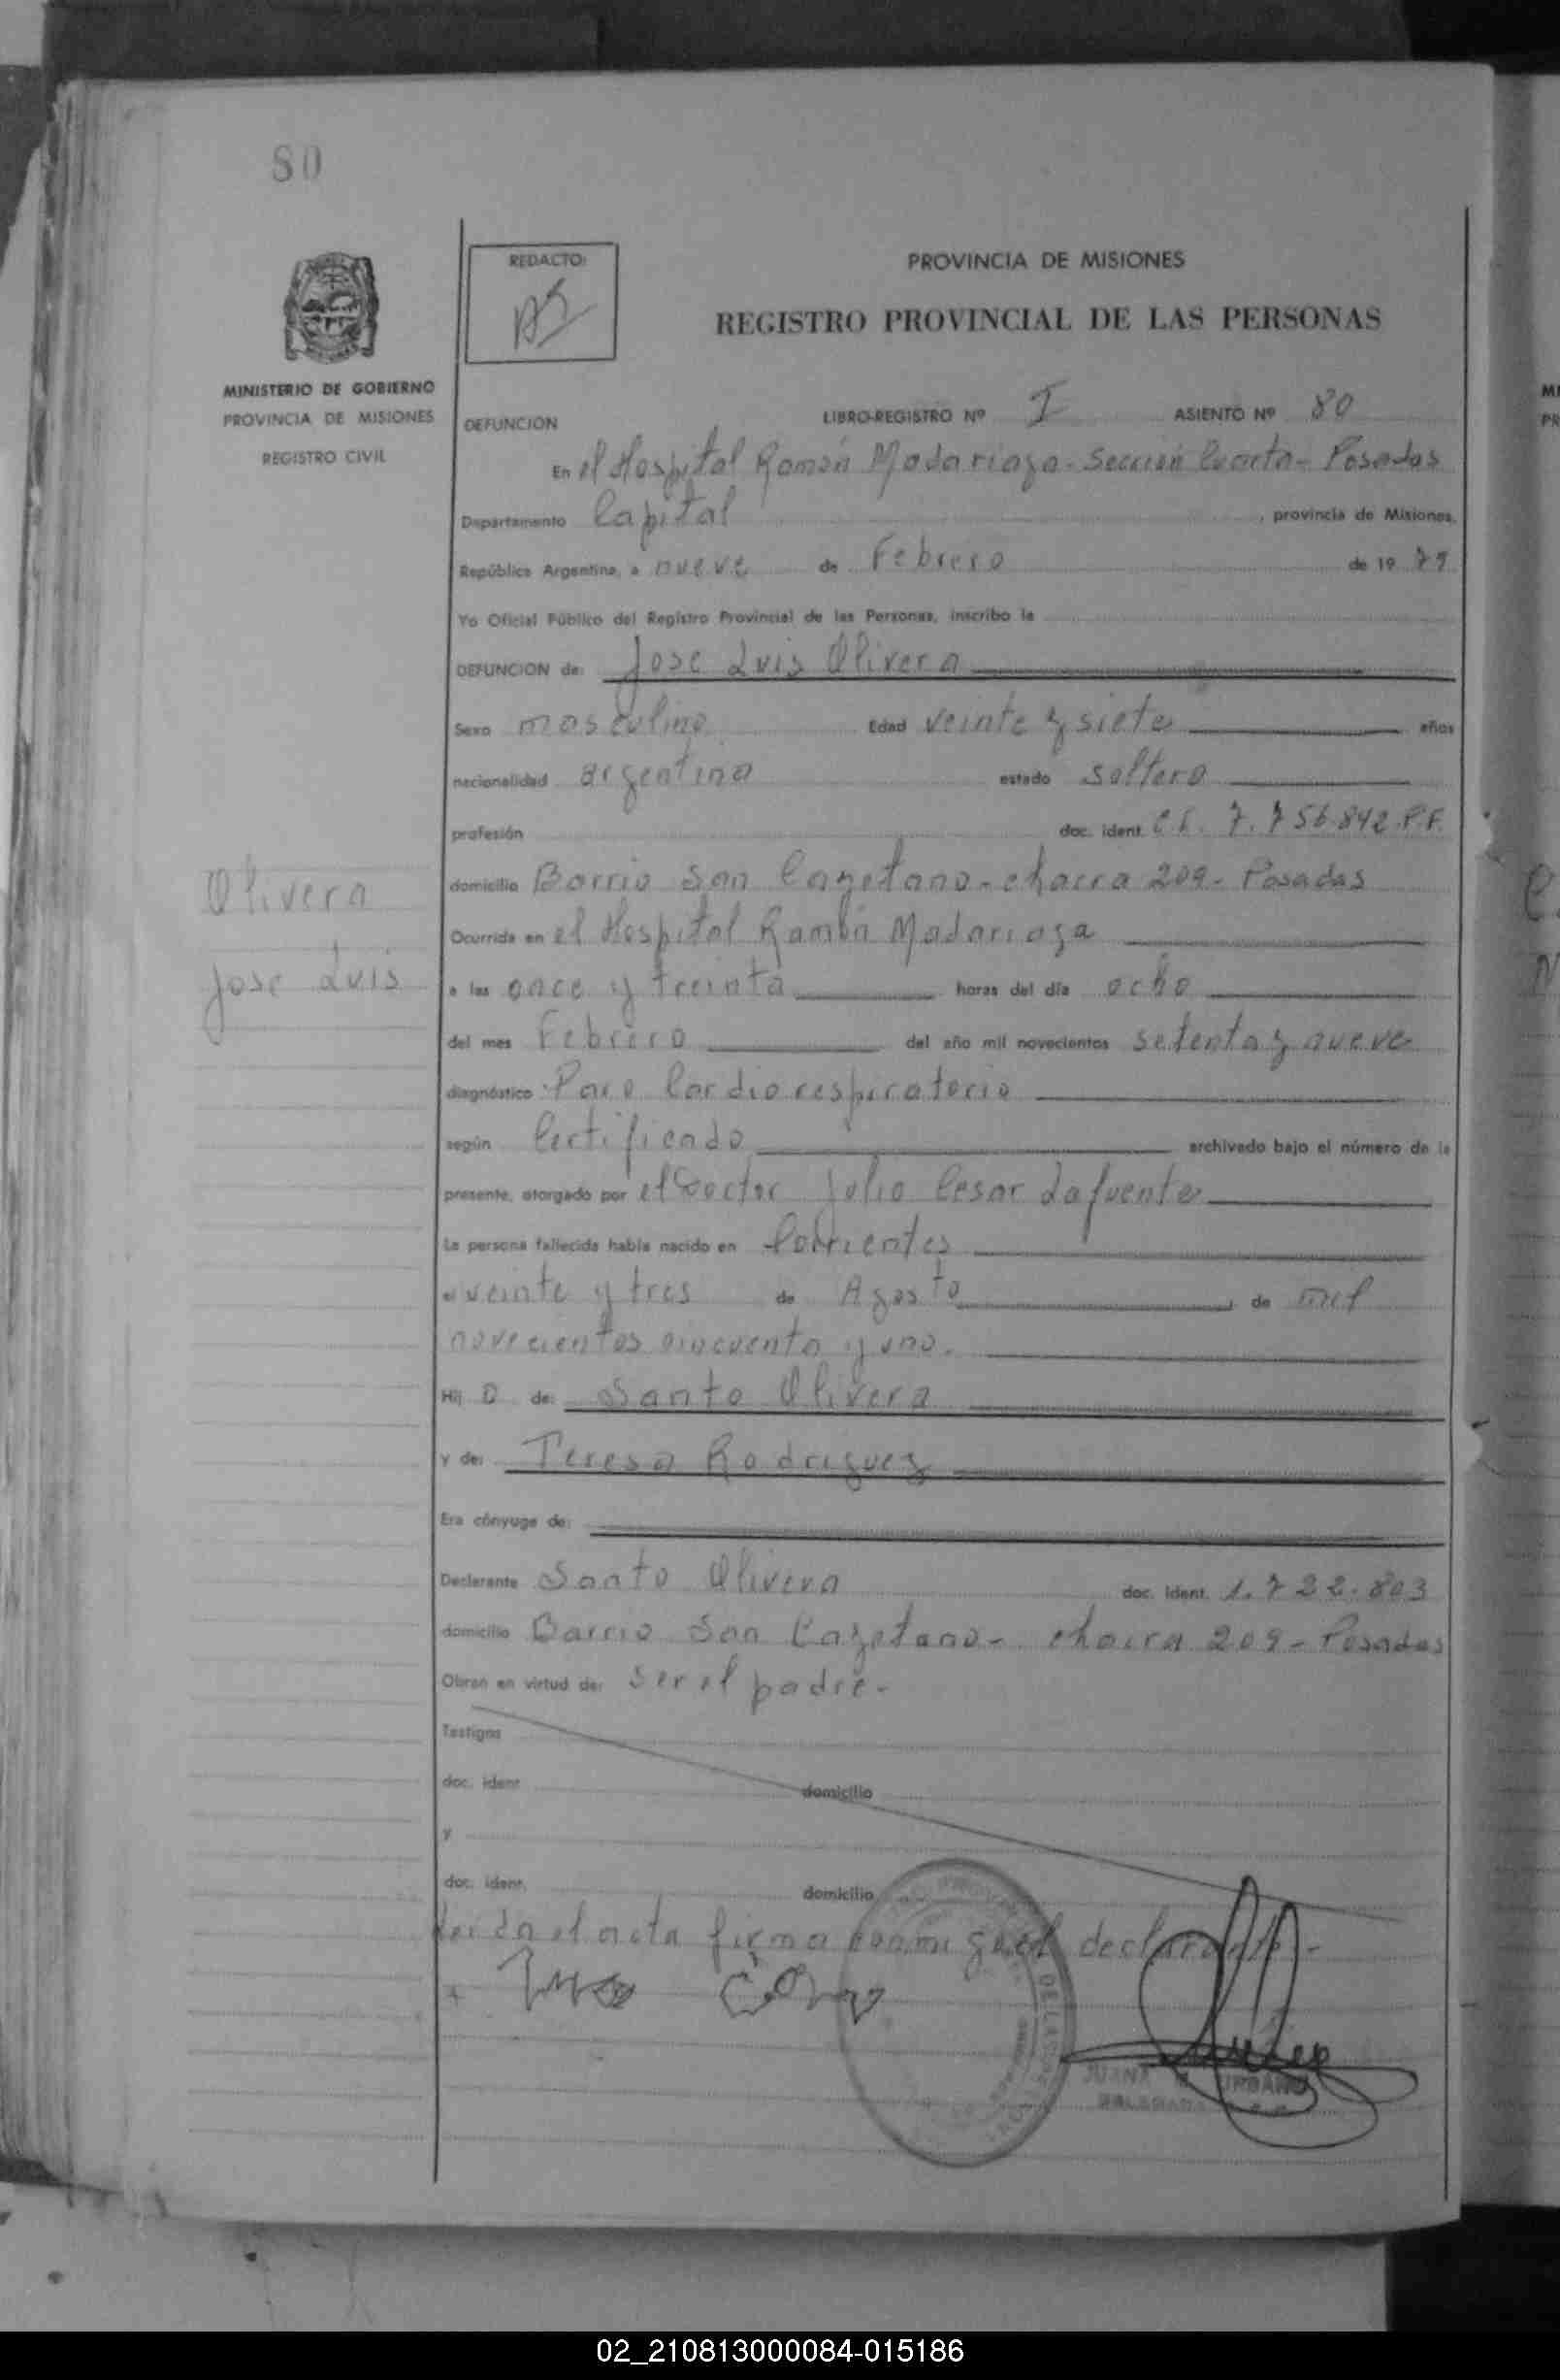 80
REDACTO:
PROVINCIA DE MISIONES
REGISTRO PROVINCIAL DE LAS PERSONAS
MINISTERIO DE GOBIERNO
PROVINCIA DE MISIONES
REGISTRO CIVIL
DEFUNCION LIBRO-REGISTRO Nº I ASIENTO Nº 80
En el Hospital Ramón Madariaga - Sección Cuarta - Posadas
Departamento Capital, provincia de Misiones,
República Argentina, a nueve de Febrero de 1979
Yo Oficial Público del Registro Provincial de las Personas, inscribo la
DEFUNCION de: Jose Luis Olivera
Sexo masculino Edad veinte y siete años
nacionalidad argentina estado soltero
profesión doc. ident. C.I. 7.756.842.P.F.
domicilio Barrio San Cayetano - chacra 209 - Posadas
Olivera
Jose Luis
Ocurrida en el Hospital Ramón Madariaga
a las once y treinta horas del día ocho
del mes Febrero del año mil novecientos setenta y nueve
diagnóstico: Paro Cardio respiratorio
según Certificado archivado bajo el número de la
presente, otorgado por el Doctor Julio Cesar Lafuente
La persona fallecida había nacido en Corrientes
el veinte y tres de Agosto, de mil
novecientos cincuenta y uno.
Hij o de: Santo Olivera
y de: Teresa Rodriguez
Era cónyuge de:
Declarante Santo Olivera doc. ident. 1.722.803
domicilio Barrio San Cayetano - chacra 209 - Posadas
Obran en virtud de: ser el padre -
Testigos
doc. ident. domicilio
y
doc. ident. domicilio
Leida el acta firma conmigo el declarante -
JUANA URBANO
02_210813000084-015186